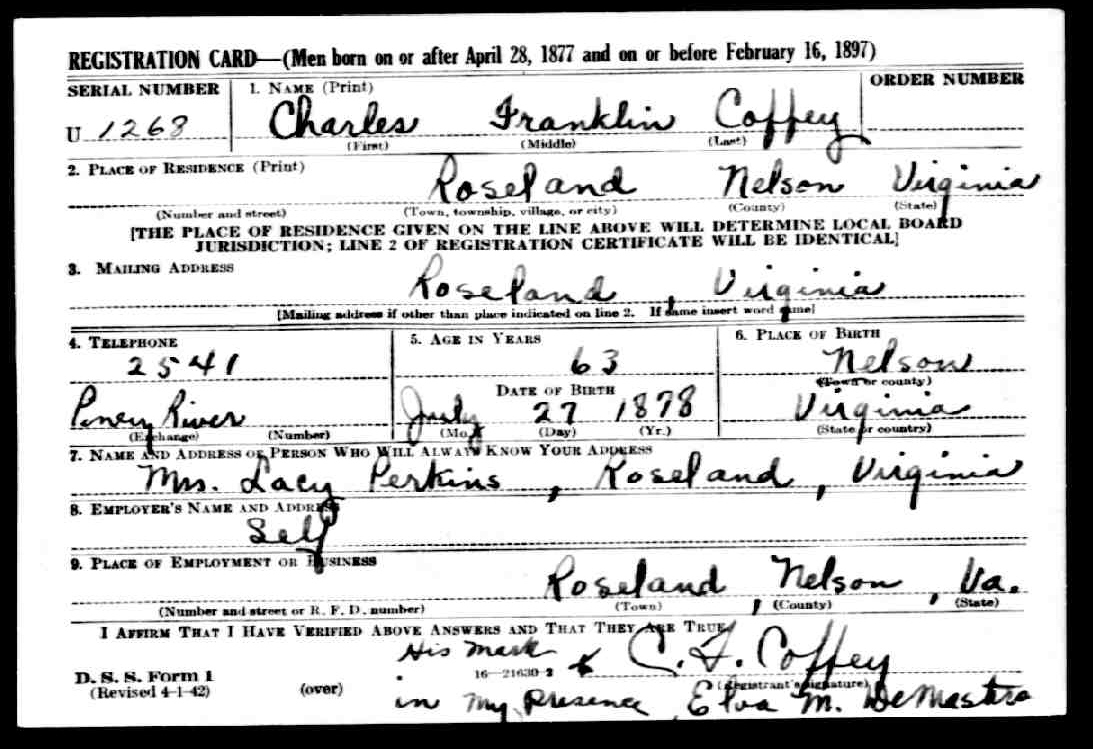 REGISTRATION CARD—(Men born on or after April 28, 1877 and on or before February 16, 1897)
SERIAL NUMBER 1. NAME (Print) ORDER NUMBER
U 1268 Charles Franklin Coffey
(First) (Middle) (Last)
2. PLACE OF RESIDENCE (Print)
Roseland Nelson Virginia
(Number and street) (Town, township, village, or city) (County) (State)
[THE PLACE OF RESIDENCE GIVEN ON THE LINE ABOVE WILL DETERMINE LOCAL BOARD
JURISDICTION; LINE 2 OF REGISTRATION CERTIFICATE WILL BE IDENTICAL]
3. MAILING ADDRESS
Roseland, Virginia
[Mailing address if other than place indicated on line 2. If same insert word same]
4. TELEPHONE 5. AGE IN YEARS 6. PLACE OF BIRTH
2541 63 Nelson
DATE OF BIRTH (Town or county)
Piney River July 27 1878 Virginia
(Exchange) (Number) (Mo.) (Day) (Yr.) (State or country)
7. NAME AND ADDRESS OF PERSON WHO WILL ALWAYS KNOW YOUR ADDRESS
Mrs. Lacy Perkins, Roseland, Virginia
8. EMPLOYER'S NAME AND ADDRESS
Self
9. PLACE OF EMPLOYMENT OR BUSINESS
Roseland, Nelson, Va.
(Number and street or R. F. D. number) (Town) (County) (State)
I AFFIRM THAT I HAVE VERIFIED ABOVE ANSWERS AND THAT THEY ARE TRUE.
His Mark C. F. Coffey
D. S. S. Form 1 16—21630-2
(Revised 4-1-42) (over) (Registrant's signature)
in My Presence, Elva M. DeMastro